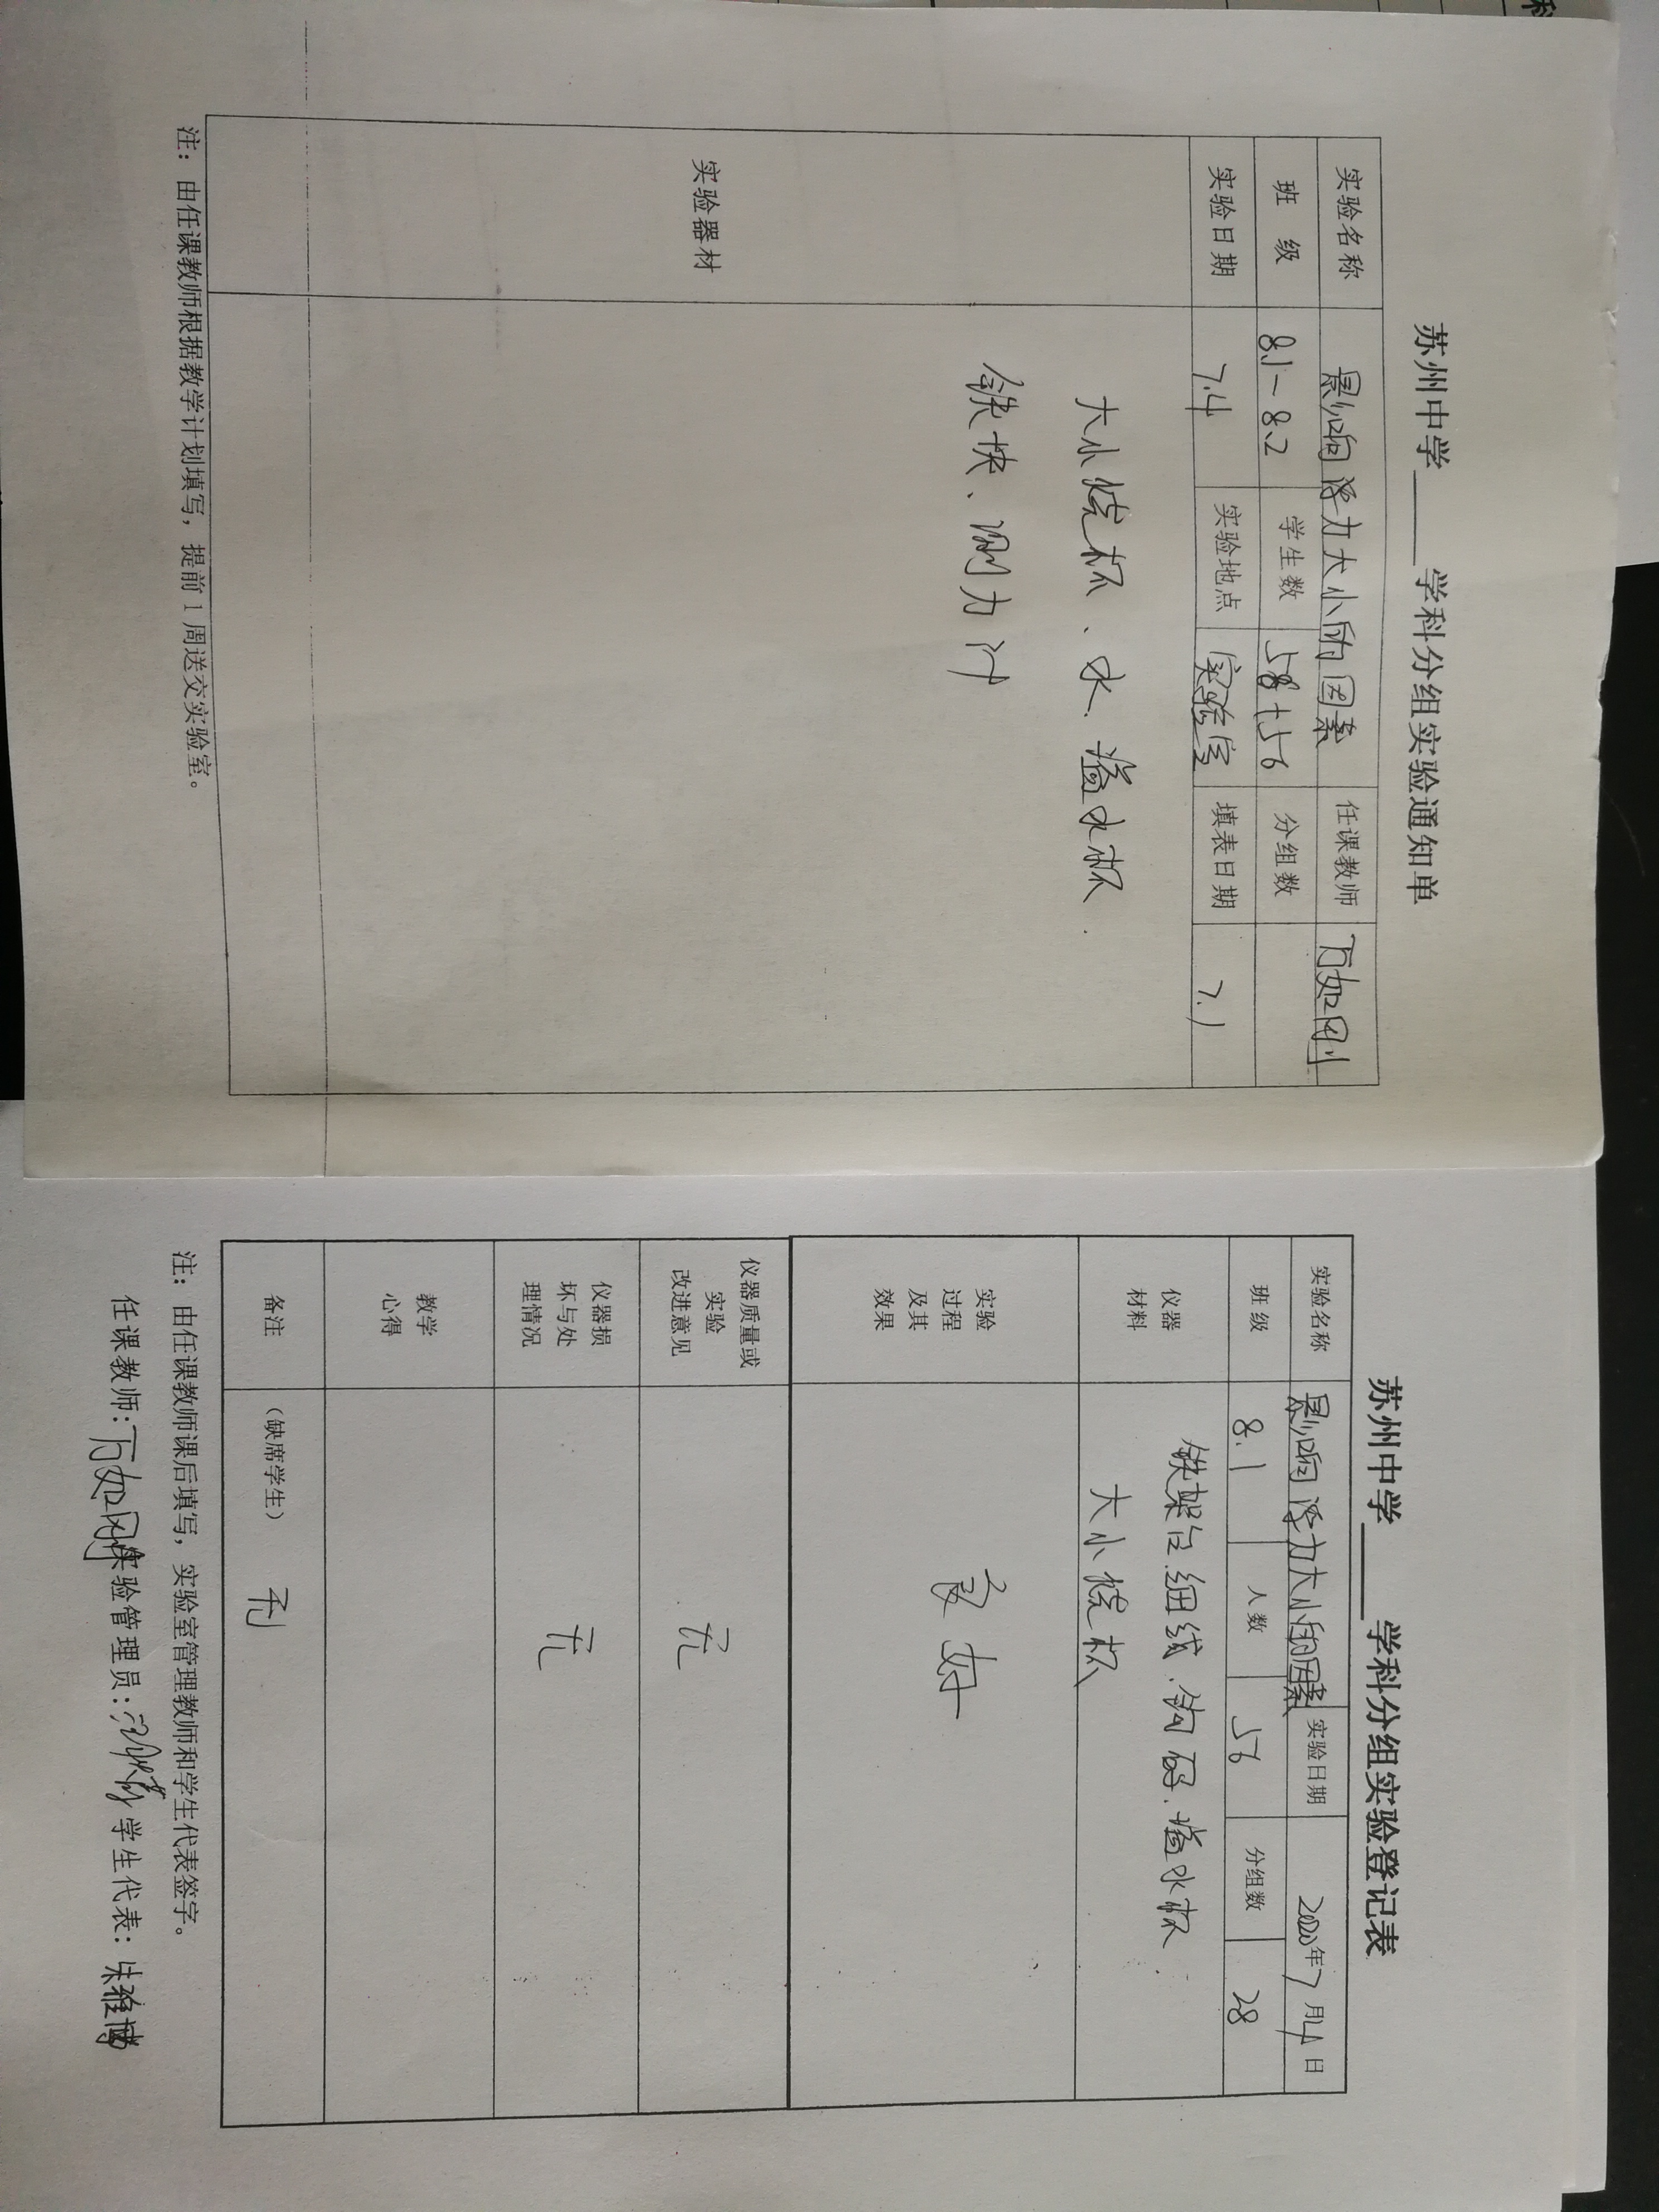 苏州中学____学科分组实验通知单
实验名称 影响浮力大小的因素 任课教师 万如刚
班 级 8.1-8.2 学生数 58+56 分组数
实验日期 7.4 实验地点 实验室 填表日期 7.1
实验器材
大小烧杯、水、溢水杯.
铁快、测力计
注：由任课教师根据教学计划填写，提前1周送交实验室。
苏州中学____学科分组实验登记表
实验名称 影响浮力大小的因素 实验日期 2020年7月4日
班级 8.1 人数 56 分组数 28
仪器
材料
铁架台.细线.钩码.溢水杯
大小烧杯
实验
过程
及其
效果
良好
仪器质量或
实验
改进意见
无
仪器损
坏与处
理情况
无
教学
心得
备注 （缺席学生） 无
注：由任课教师课后填写，实验室管理教师和学生代表签字。
任课教师:万如刚 实验管理员: 学生代表: 朱雅博